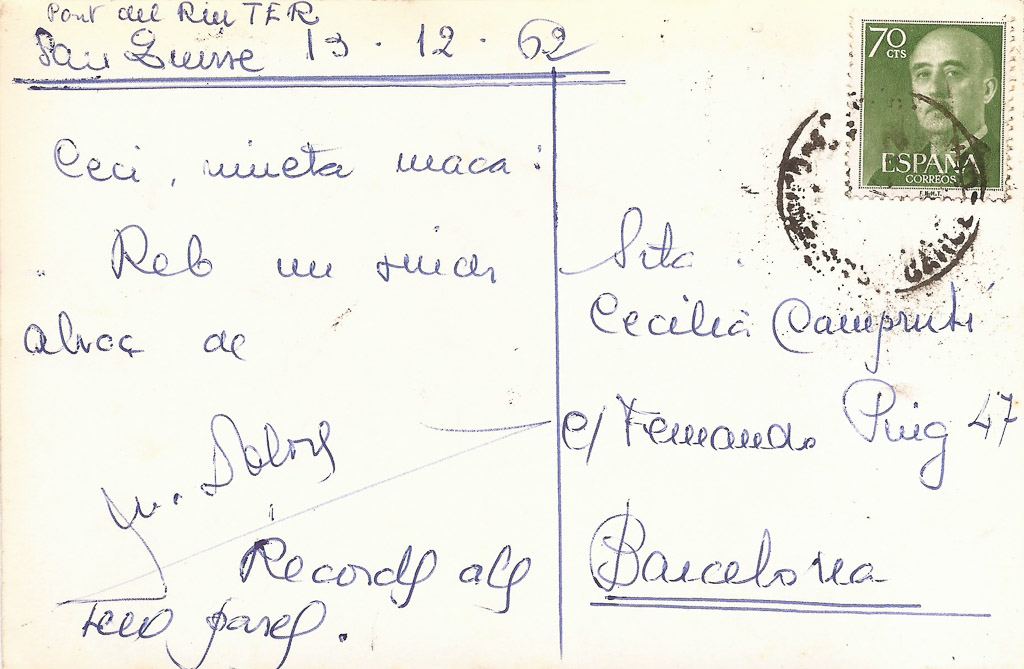 Pont del Riu TER
13 . 12 . 62
Ceci, nineta maca:
Reb un sincer
abraç de
Mª. Dolors
Records als
teus pares.
70
CTS
ESPAÑA
CORREOS
F.N.M.T.
Srta.
Cecilia Campruti
c/ Fernando Puig 47
Barcelona